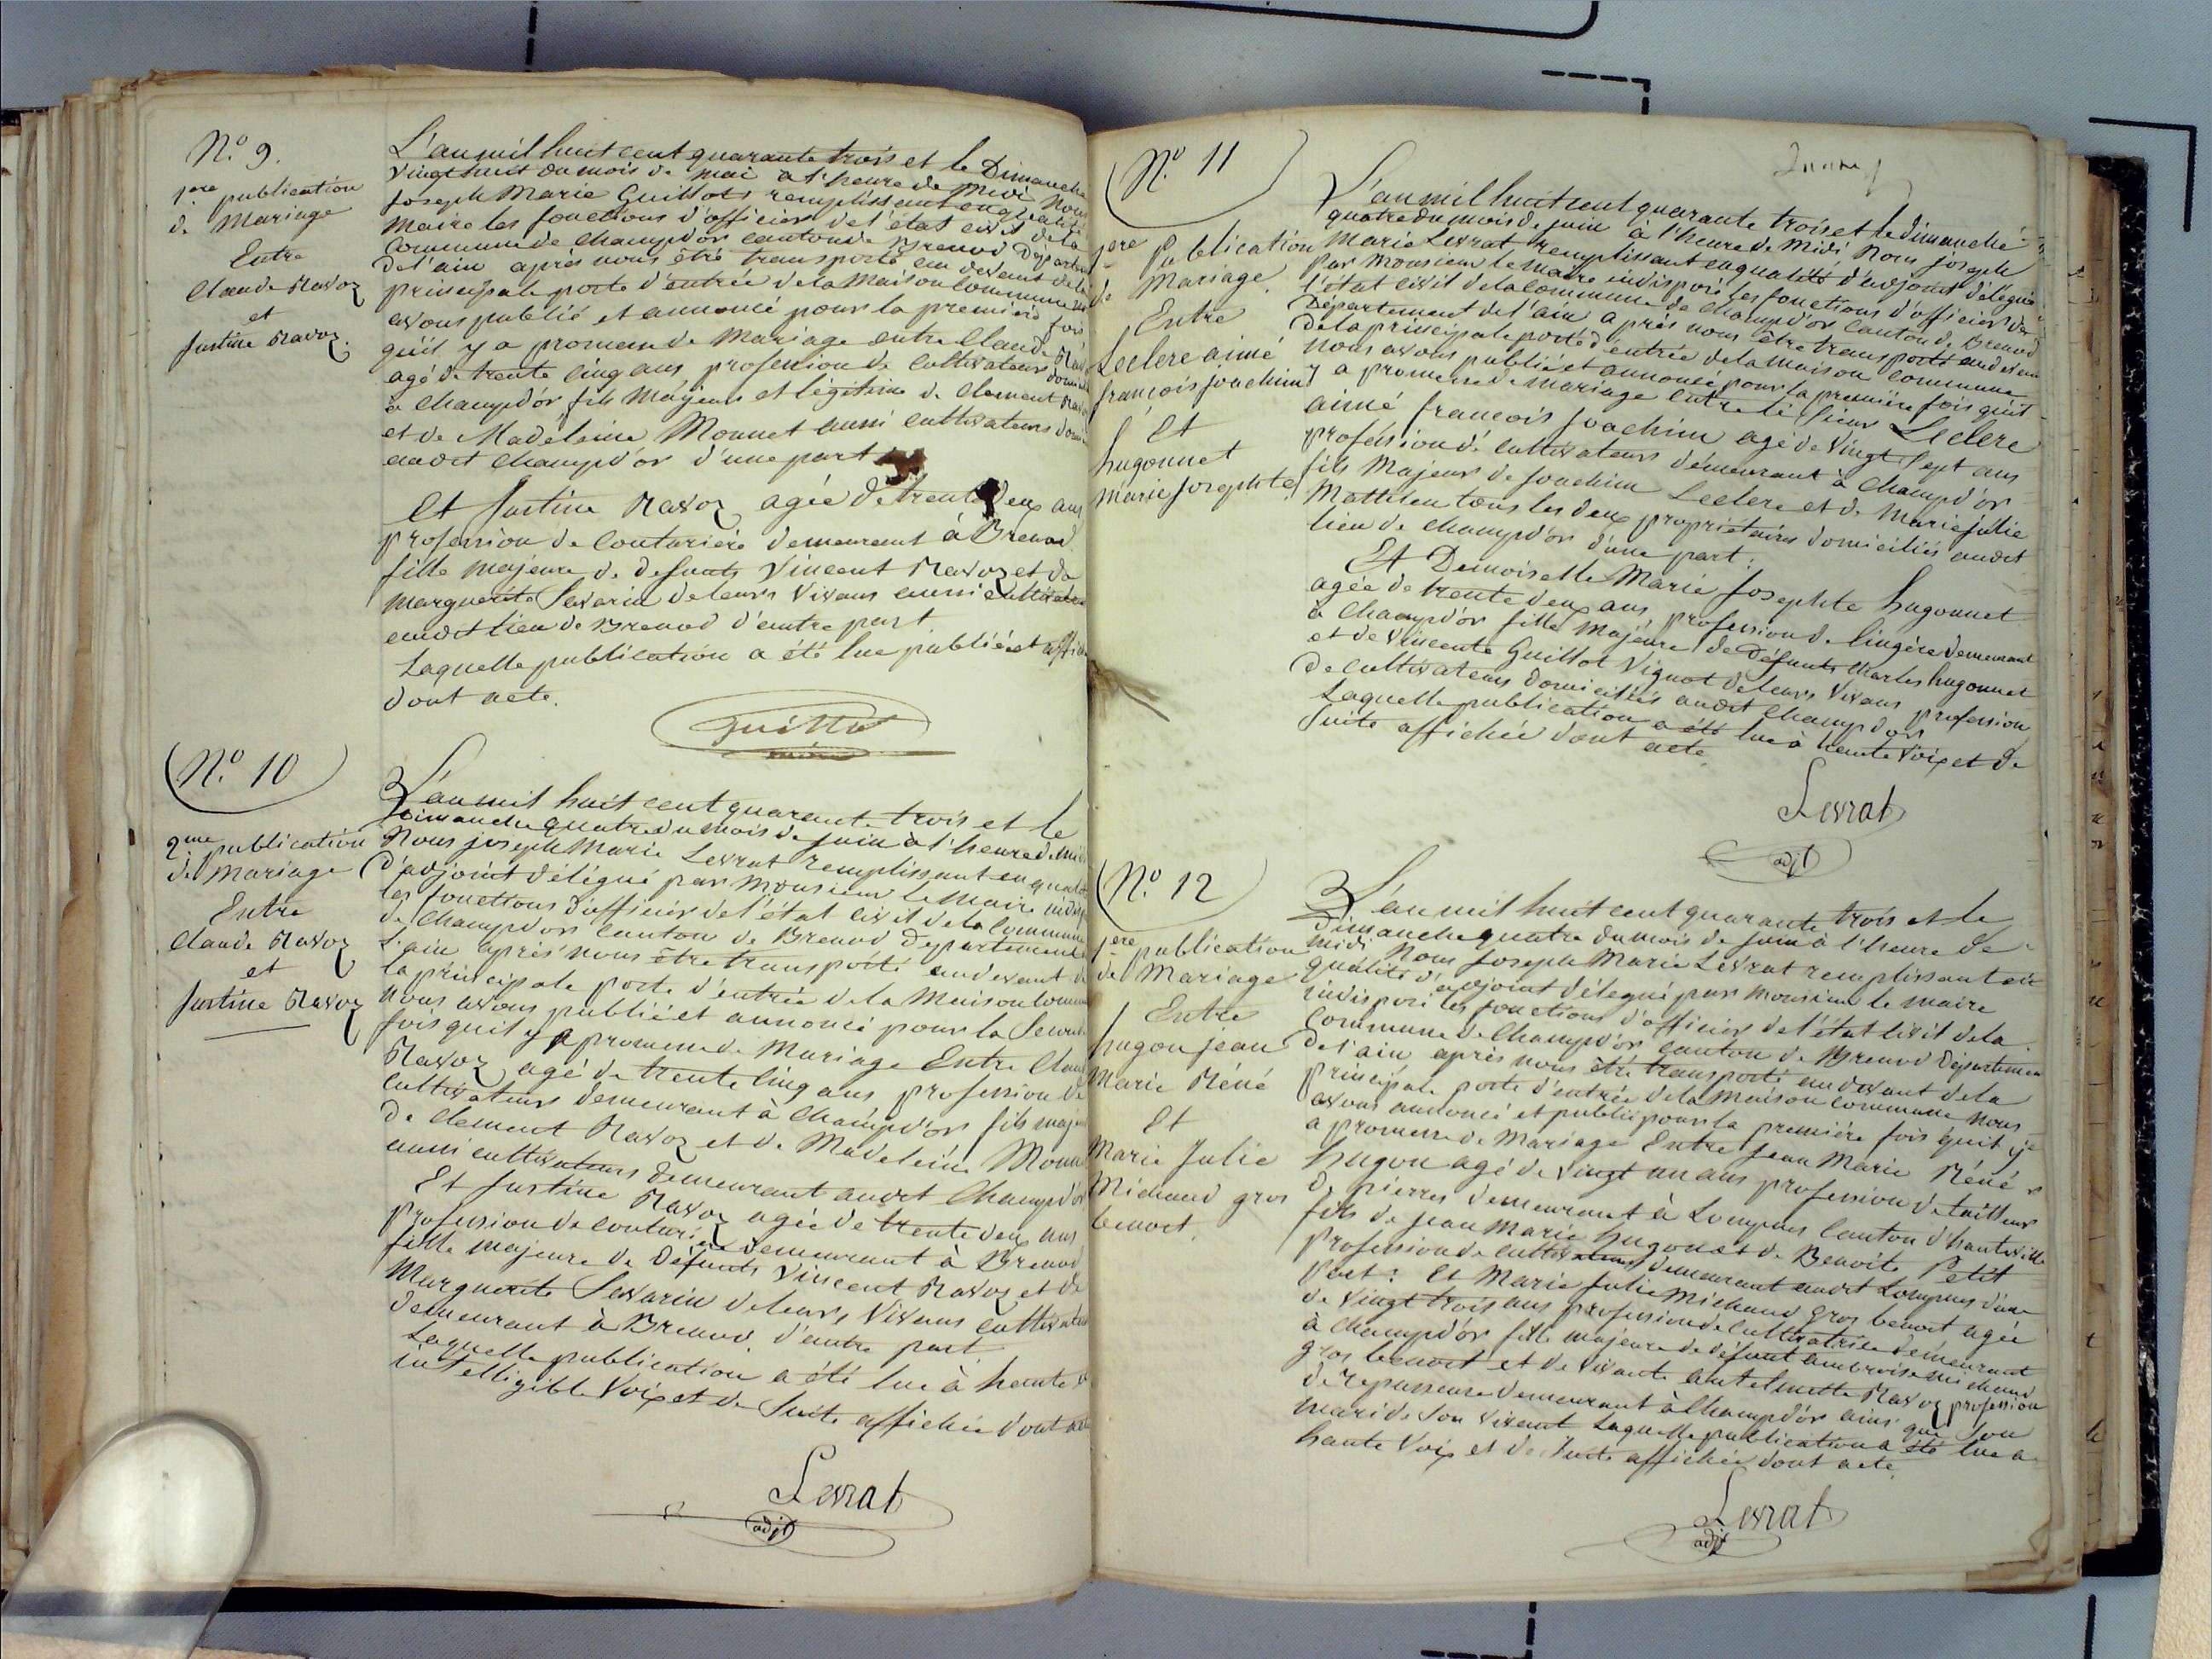 N.o 9.
1.ere publication
de Mariage
Entre
Claude Ravoz
et
Justine Ravoz.
L'an mil huit cent quarante trois et le Dimanche
vingt huit du mois de mai a l'heure de Midi Nous
Joseph Marie Guillot remplissent en qualité
Maire les fonctions d'officier de l'état civil de la
Commune de Champd'or canton de Brenod Départem
de l'ain après nous être transporté au devant de la
principale porte d'entrée de la Maison Commune
avons publié et annoncé pour la premiere fois
qu'il y a promesse de Mariage entre Claude Rav
agé de trente cinq ans, profession de Cultivateur domici
à Champd'or fils Majeur et légitime de Clement Ravo
et de Madelaine Monnet aussi cultivateurs domi
audit Champd'or d'une part
Et Justine Ravoz agée de trente deux ans
profession de Couturière demeurant à Brenod
fille majeure de defunts Vincent Ravoz et de
marguerite Savarin de leurs vivans aussi cultivate
audit lieu de Brenod d'autre part.
Laquelle publication a été lue publiée et affich
dont acte.
Guillot
N.o 10
2.me publication
de Mariage
Entre
Claude Ravoz
et
Justine Ravoz
L'an mil huit cent quarante trois et le
Dimanche quatre du mois de juin à l'heure de Mi
Nous joseph Marie Levrat remplissant en qual
d'adjoint délégué par Monsieur le Maire indisp
les fonctions d'officier de l'état civil de la Commune
de Champd'or canton de Brenod Departement
L'ain après nous être transporté au devant de
la principale porte d'entrée de la Maison commu
nous avons publié et annoncé pour la Secon
fois qu'il y a promesse de Mariage Entre Clau
Ravoz agé de trente cinq ans profession de
Cultivateurs demeurant à Champd'or fils maj
de Clement Ravoz et de Madeleine Monn
aussi cultivateurs demeurant audit Champd'or
Et Justine Ravoz agée de trente deux ans
profession de couturière demeurant à Brenod
fille majeure de Défunts Vincent Ravoz et de
Marguerite Savarin de leurs Vivans cultivate
demeurant à Brenod. d'autre part
Laquelle publication a été lue à haute
intelligible Voix et de Suite affichée dont
Levrat
adjt
N.o 11
1ere Publication
de Mariage.
Entre
Leclerc aimé
françois joachim
Et
hugonnet
marie josephte
L'an mil huit cent quarante trois et le dimanche
quatre du mois de juin à l'heure de Midi Nous joseph
Marie Levrat remplissant en qualité d'adjoint délégué
Par Monsieur le Maire indisposé les fonctions d'officier de
l'état civil de la Commune de Champd'or Canton de Brenod
Département de l'ain après nous être transporté au devant
de la principale porte d'entrée de la Maison Commune
Nous avons publié et annoncé pour la première fois qu'il
y a promesse de mariage entre le sieur Leclerc
aimé francois Joachim agé de vingt sept ans
profession de cultivateurs demeurant à Champd'or
fils Majeur de Joachim Leclerc et de Marie julie
Mathieu tous les deux proprietaires domiciliés audit
lieu de Champd'or d'une part:
Et Demoiselle Marie Josephte hugonnet
agée de trente deux ans profession de lingère demeurant
à Champd'or fille Majeure de Défunts Charles hugonnet
et de Vincente Guillot Vignot de leurs Vivans profession
de cultivateurs domiciliés audit Champd'or
Laquelle publication a été lue à haute Voix et de
Suite affichée dont acte.
Levrat
adjt
N.o 12
1ere publication
de Mariage
Entre
hugon jean
Marie Réné
Et
Marie Julie
Michaud gros
benoit.
L'an mil huit cent quarante trois et le
dimanche quatre du mois de juin à l'heure de
midi Nous Joseph Marie Levrat remplissant en
qualité d'adjoint délegué par monsieur le maire
indisposé les fonctions d'officier de l'état civil de la
Commune de Champd'or Canton de Brenod Départemen
de l'ain après nous être transporté au devant de la
principale porte d'entrée de la maison commune Nous
avons annoncé et publié pour la première fois qu'il y
a promesse de Mariage Entre Jean Marie Réné
hugon agé de Vingt un ans profession de tailleur
de pierres demeurant à Lompnes Canton d'hauteville
fils de jean Marie hugon et de Benoite Petit
Profession de cultivateurs demeurant audit Lompnes d'une
Part: Et Marie Julie Michaud gros benoit agée
de Vingt trois ans profession de Cultivatrice demeurant
à Champd'or fille majeure de défunt ambroise michaud
gros benoit et de Vivante Anthelmette Ravoz profession
de repasseuse demeurant à Champd'or ainsi que Son
mari de Son vivant Laquelle publication a été lue a
haute Voix et de Suite affichée dont acte.
Levrat
adjt